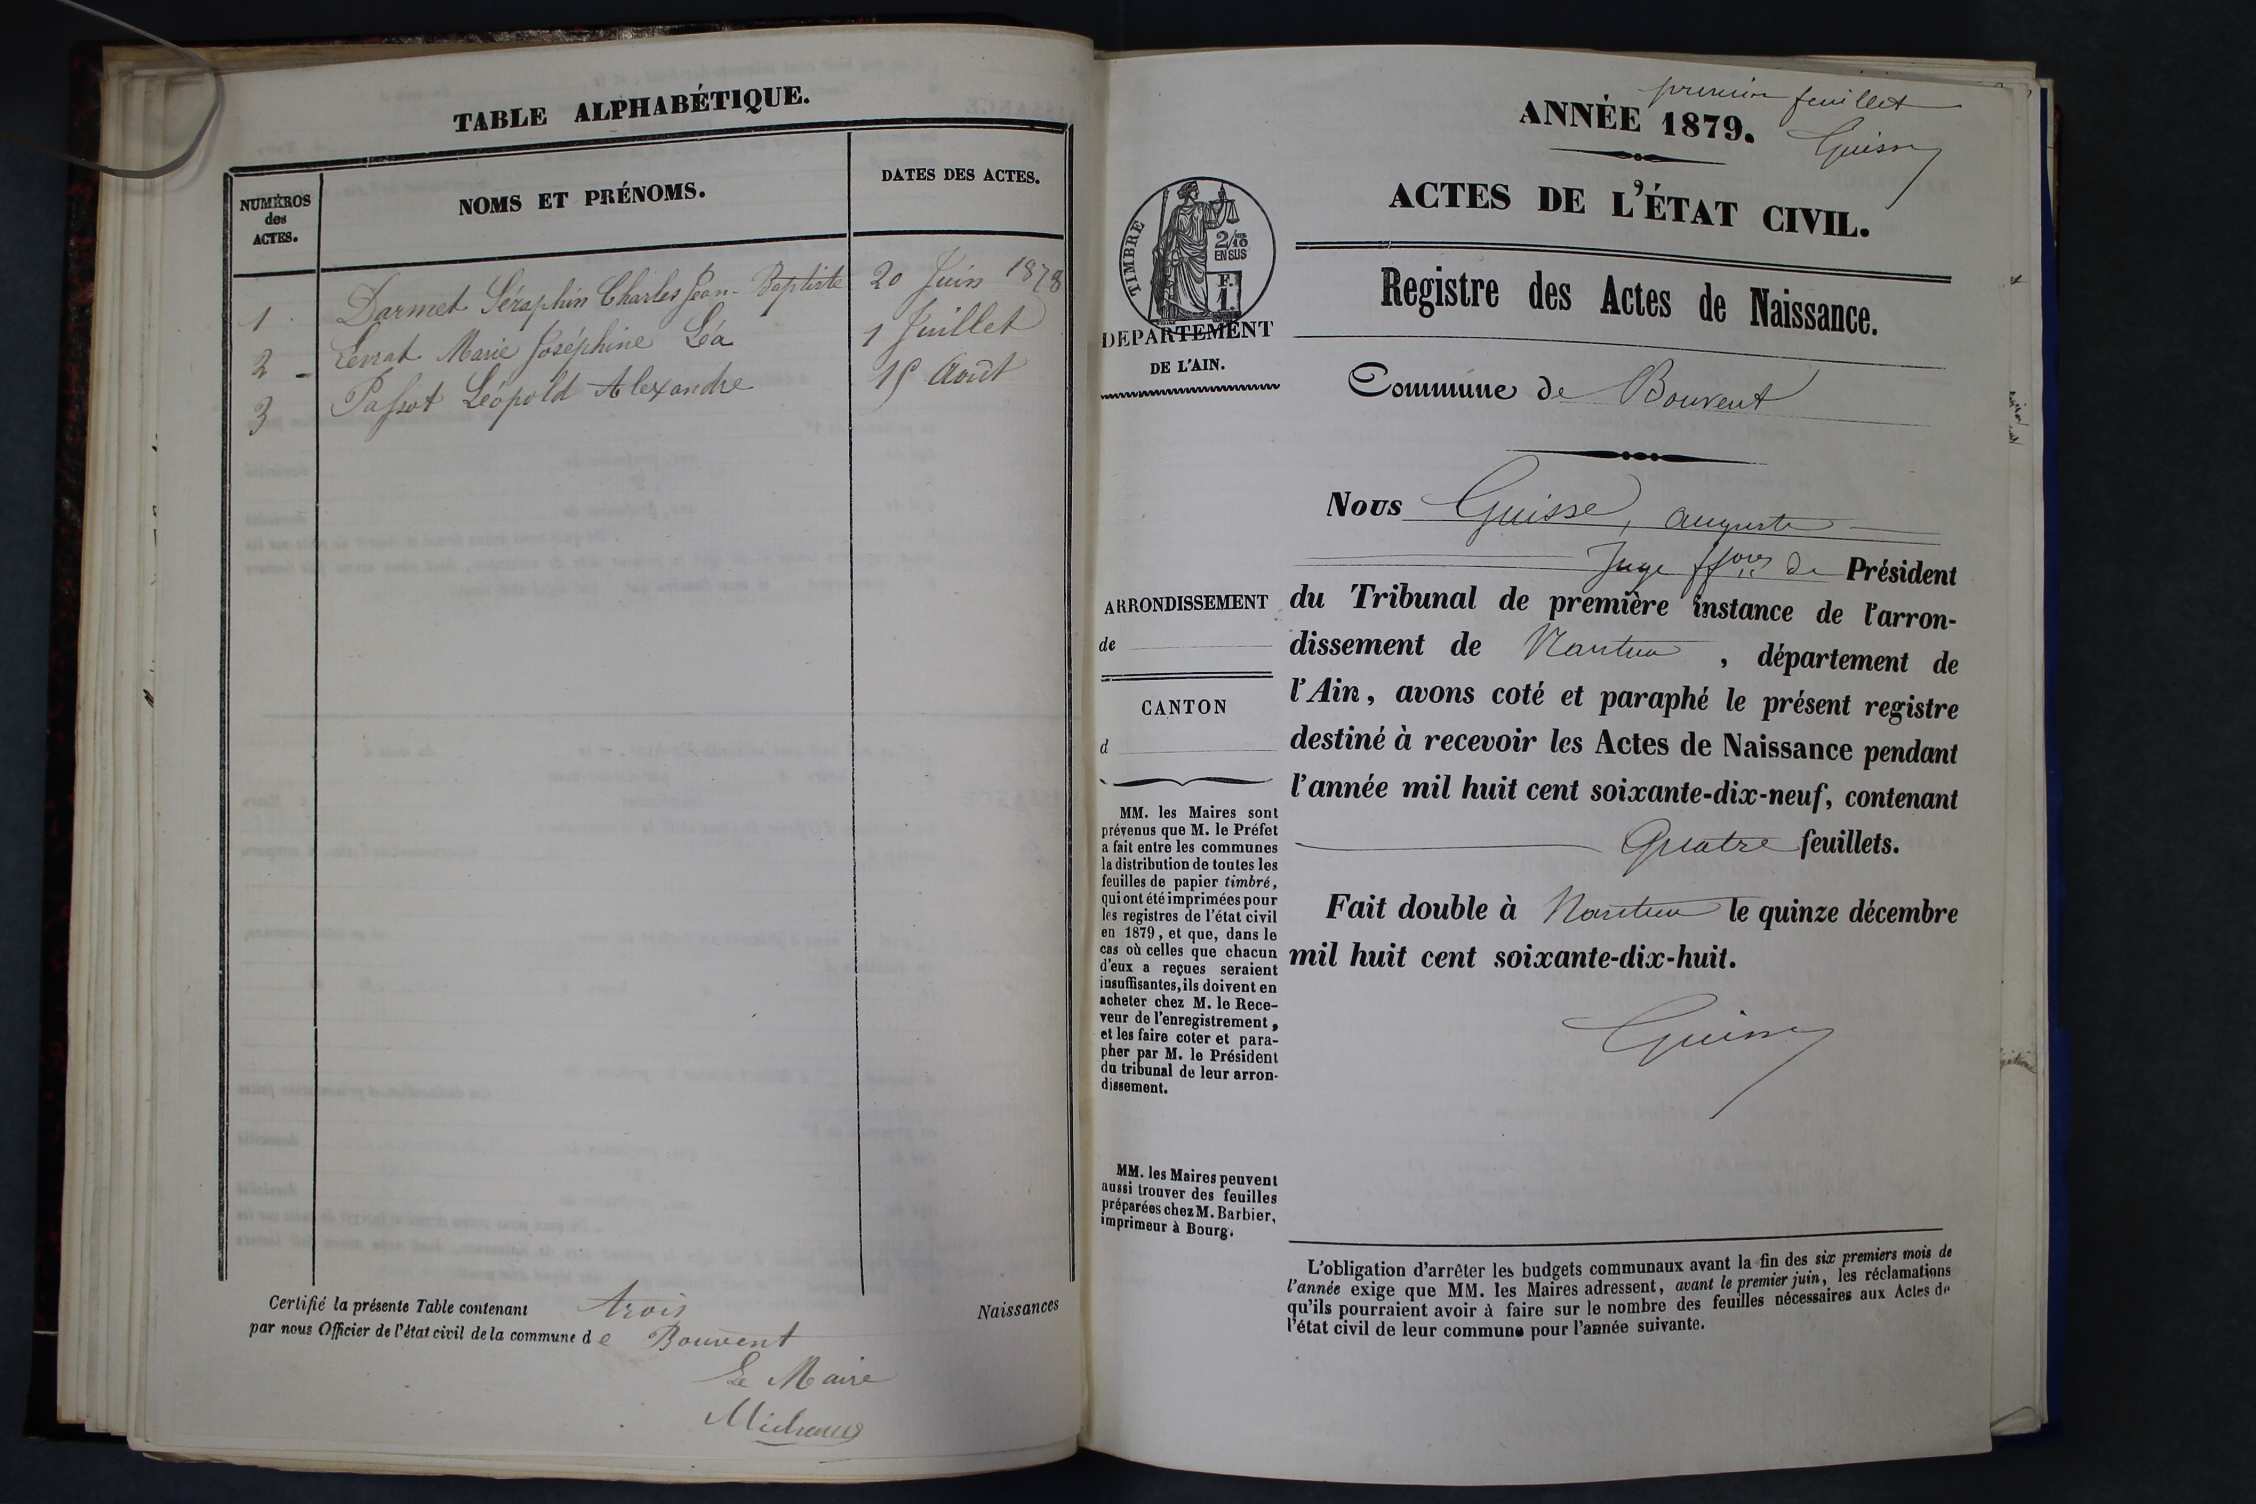 TABLE ALPHABÉTIQUE.
NUMÉROS
des
ACTES.
NOMS ET PRÉNOMS.
DATES DES ACTES.
1 Darmet Séraphin Charles Jean-Baptiste 20 Juin 1878
2 - Levrat Marie Joséphine Léa 1 Juillet
3 Passot Léopold Alexandre 15 Août
Certifié la présente Table contenant trois Naissances
par nous Officier de l'état civil de la commune de Bouvent
Le Maire
Michaud
premier feuillet
Guisse
ANNÉE 1879.
ACTES DE L'ÉTAT CIVIL.
TIMBRE
2/10
EN SUS
F.
1.
DÉPARTEMENT
DE L'AIN.
Registre des Actes de Naissance.
Commune de Bouvent
Nous Guisse, auguste
Juge ffons de Président
du Tribunal de première instance de l'arron-
dissement de Nantua, département de
l'Ain, avons coté et paraphé le présent registre
destiné à recevoir les Actes de Naissance pendant
l'année mil huit cent soixante-dix-neuf, contenant
Quatre feuillets.
Fait double à Nantua le quinze décembre
mil huit cent soixante-dix-huit.
Guisse
ARRONDISSEMENT
de
CANTON
d
MM. les Maires sont
prévenus que M. le Préfet
a fait entre les communes
la distribution de toutes les
feuilles de papier timbré,
qui ont été imprimées pour
les registres de l'état civil
en 1879, et que, dans le
cas où celles que chacun
d'eux a reçues seraient
insuffisantes, ils doivent en
acheter chez M. le Rece-
veur de l'enregistrement,
et les faire coter et para-
pher par M. le Président
du tribunal de leur arron-
dissement.
MM. les Maires peuvent
aussi trouver des feuilles
préparées chez M. Barbier,
imprimeur à Bourg.
L'obligation d'arrêter les budgets communaux avant la fin des six premiers mois de
l'année exige que MM. les Maires adressent, avant le premier juin, les réclamations
qu'ils pourraient avoir à faire sur le nombre des feuilles nécessaires aux Actes de
l'état civil de leur commune pour l'année suivante.